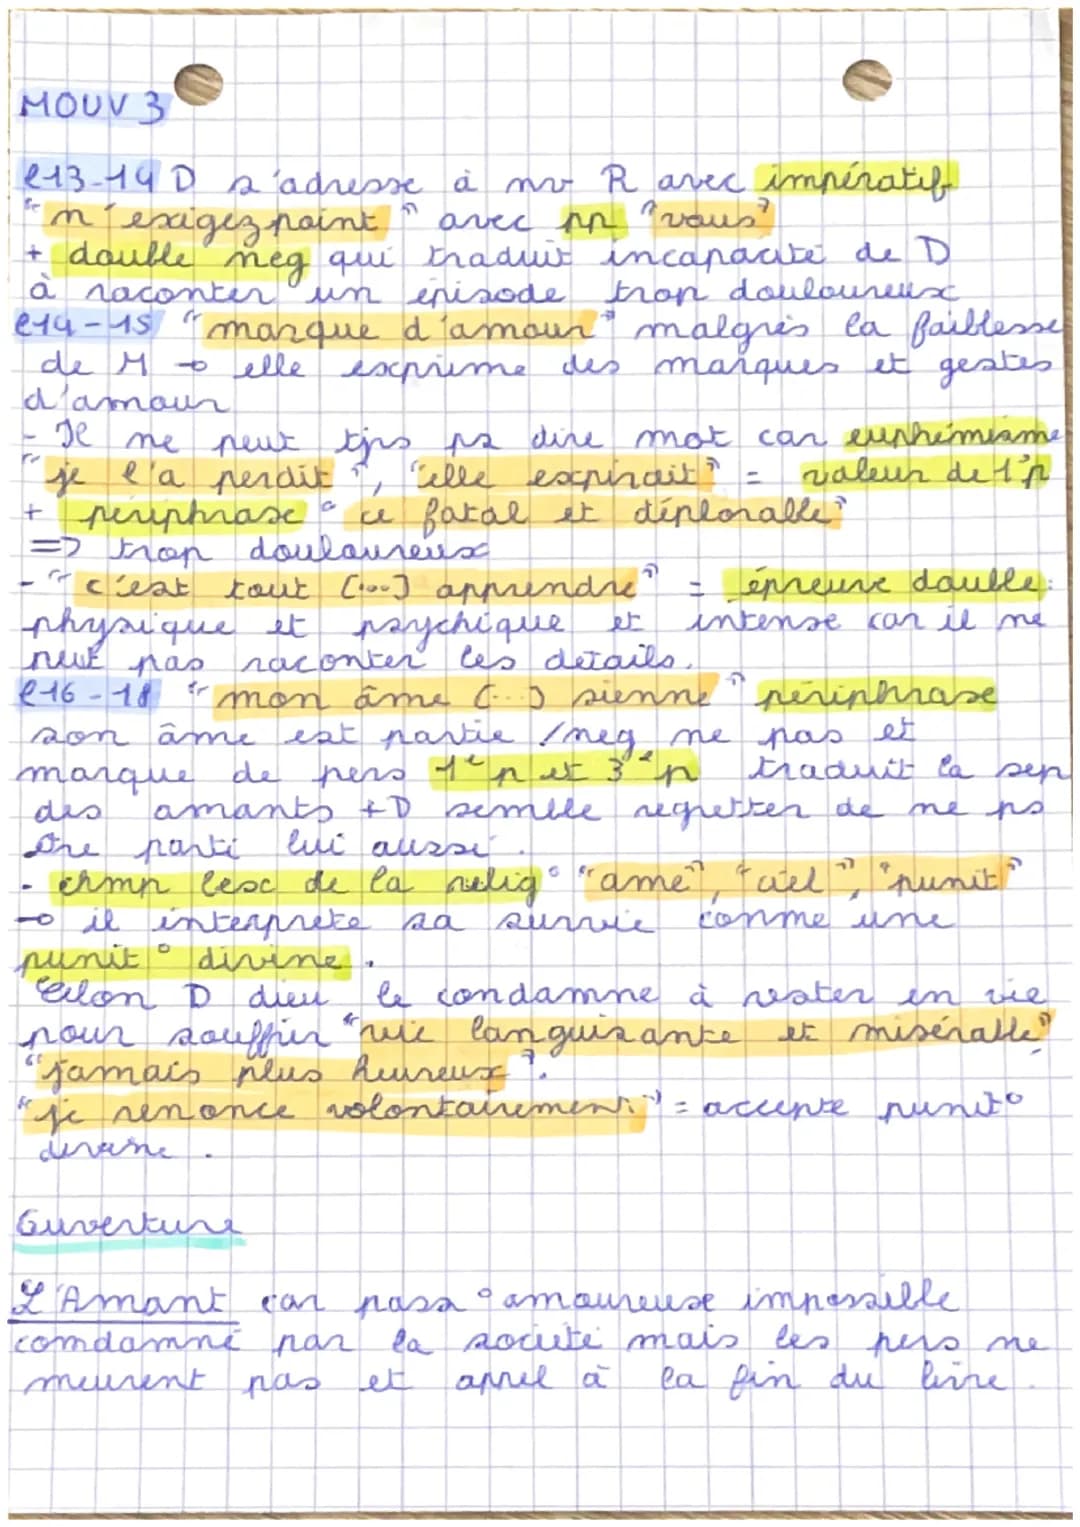 MOUV 3
l13-14 D s'adresse à nv R avec impératif
"n'exigez point" avec pp "vous"
+ double neg qui traduit incapacité de D
à raconter un épisode trop douloureux
l14-15 "marque d'amour" malgrès la faiblesse
de M → elle exprime des marques et gestes
d'amour
- Il ne peut tjrs ps dire mot car euphémisme
"je l'a perdit", "elle expirait" = valeur de 1°p
+ périphrase "ce fatal et déplorable"
=> trop douloureux
- "c'est tout (...] apprendre" = épreuve double:
physique et psychique et intense car il ne
peut pas raconter les détails.
l16-18 "mon âme (...) sienne" périphrase
son âme est partie / neg ne pas et
marque de pers 1e p et 3e p traduit la sep
des amants + D semble regretter de ne ps
être parti lui aussi.
- chmp lesc de la relig° "ame", "ciel", "punit"
→ il interprète sa survie comme une
punit° divine.
Selon D dieu le condamne à rester en vie
pour souffrir "vie languisante et misérable"
"jamais plus heureux".
"je renonce volontairement" = accepte punit°
divine.
Ouverture
L'Amant car pass° amoureuse impossible
comdamné par la société mais les pers ne
meurent pas et appel à la fin du livre.